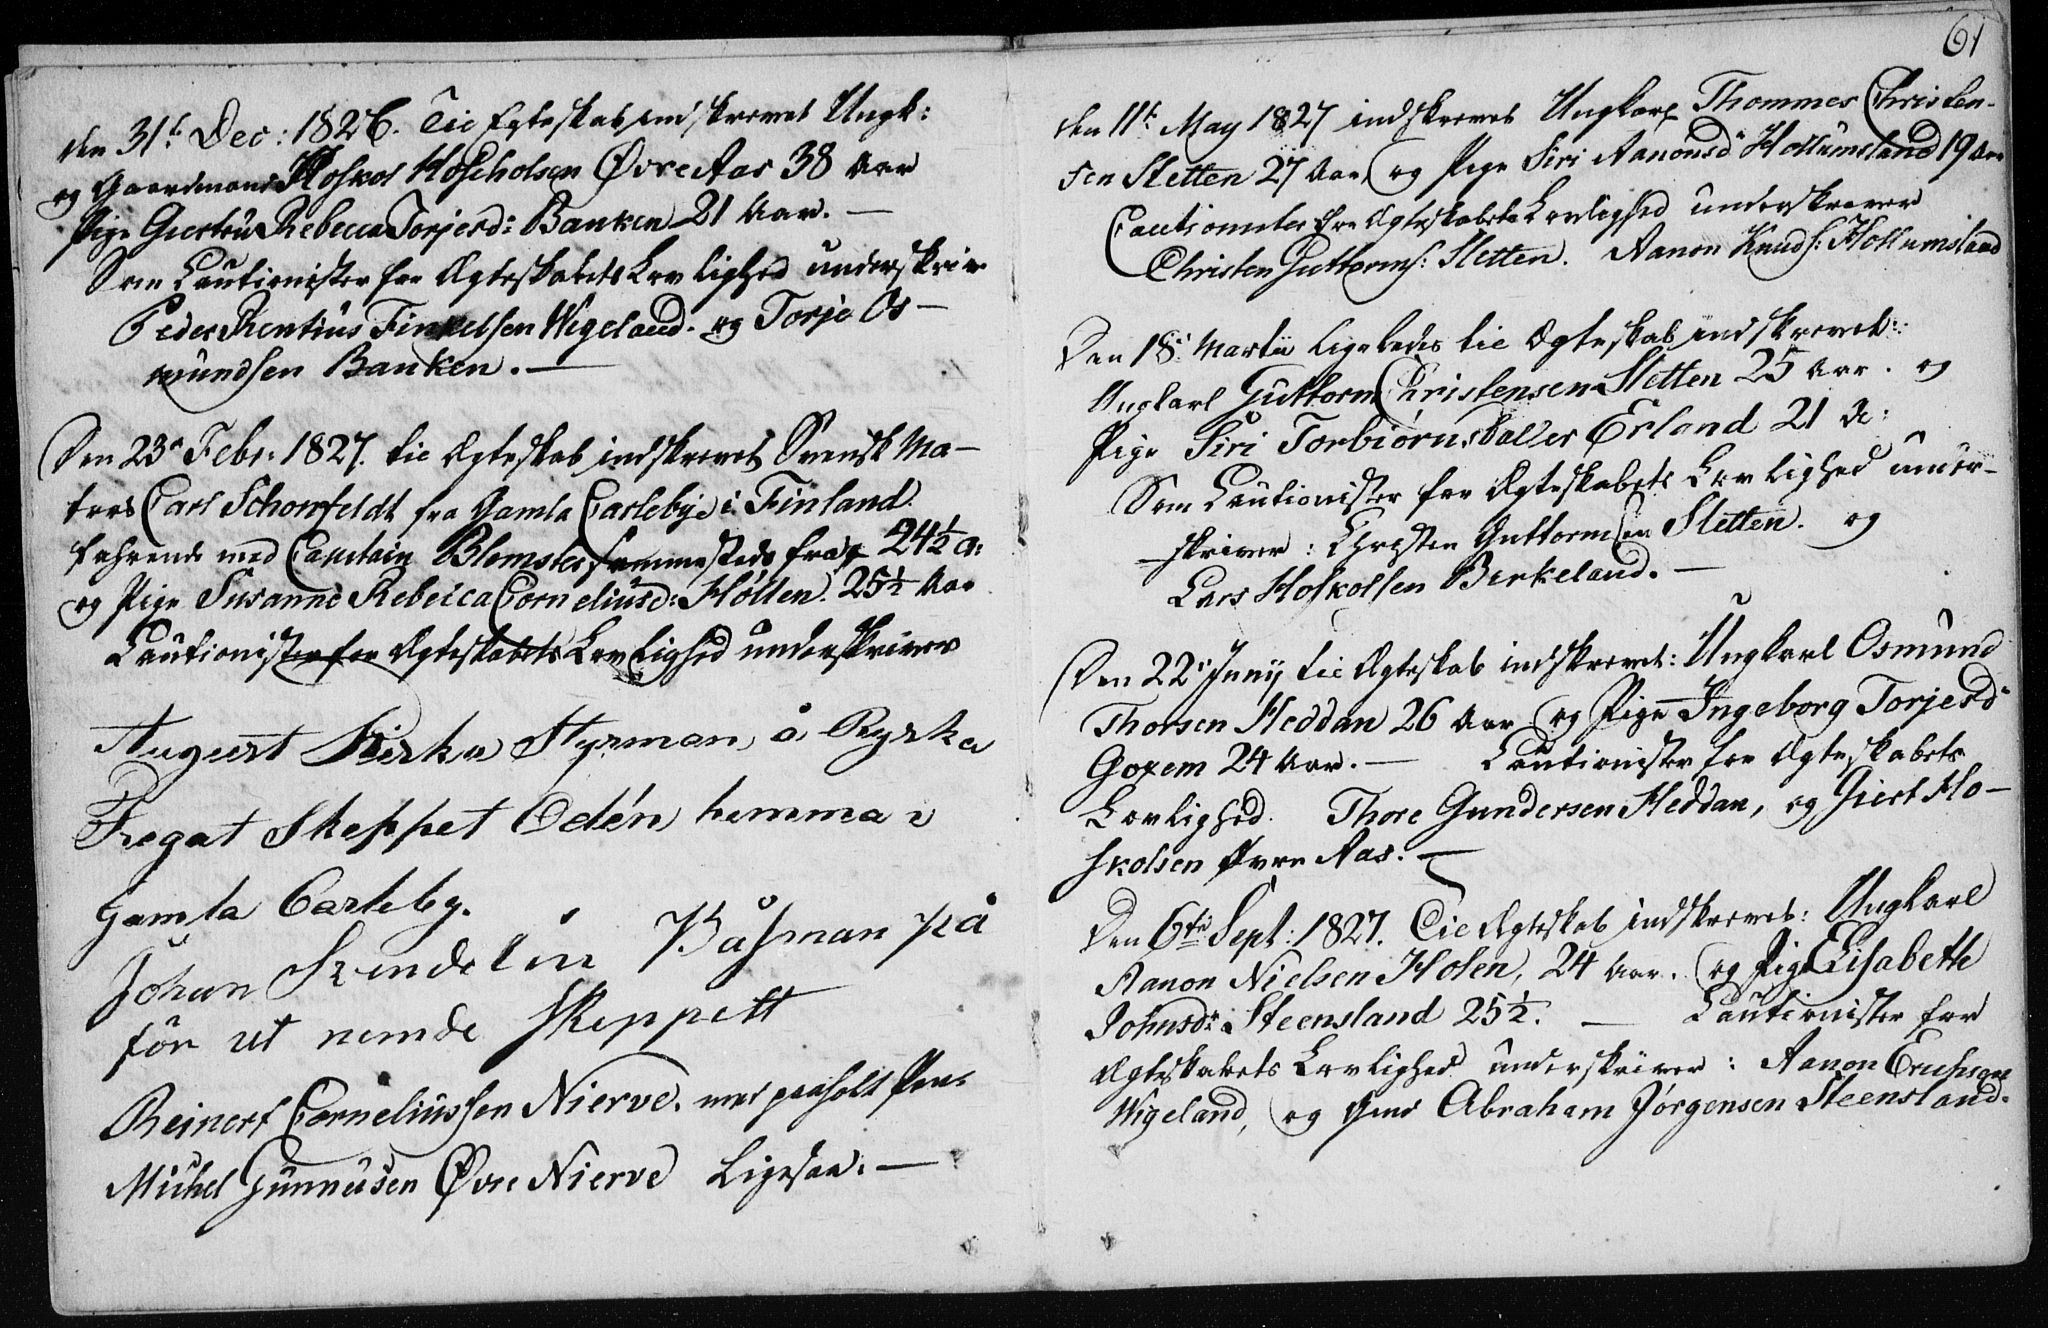 den 31t Dec: 1826. Til Egteskab indskrevet Ungk:
og Gaardmand Hoskol Hoscholsen Øvre Aas 38 Aar
Pige Giertru Rebecca Torjesd: Banken 21 Aar. —
Som Cautionister for Ægteskabets Lovlighed underskriver
Peder Rentius Finkelsen Wigeland. og Torje Os-
mundsen Banken. —
Den 23de Febr: 1827. til Ægteskab indskrevet Svensk Ma-
tros Carl Schonfeldt fra Gamla Carlebye i Finland
farende med Capitain Blomster sammesteds fra 24½ A:
og Pige Susanne Rebecca Corneliusd: Hølten. 25½ Aar
Cautionister for Ægteskabets Lovlighed underskriver
August Kirka Styrman å Ryska
Fregat Skeppet Odén hemma i
Gamla Carleby.
Johan Båsman på
för ut nemde Skeppett
Reinert Corneliussen Nierve. med paaholt Pen.
Michel Gunneusen Øvre Nierve Ligesaa. —
61
den 11te May 1827 indskrevet Ungkarl Thommes Christen-
sen Sletten 27 Aar, og Pige Siri Aanonsd: Hollumsland 19 Aar
Cautionister for Ægteskabets Lovlighed underskriver
Christen Guttormss: Sletten. Aanon Knuds: Hollumsland
Den 18de Martii ligeledes til Ægteskab indskrevet:
Ungkarl Guttorm Christensen Sletten 25 Aar. og
Pige Siri Torbiørnsdatter Erland 21 A:
Som Cautionister for Ægteskabets Lovlighed under-
skriver: Christen Guttormsen Sletten. og
Lars Hoskolssen Birkeland. —
Den 22de Junij til Ægteskab indskrevet: Ungkarl Osmund
Thorsen Heddan 26 Aar og Pige Ingeborg Torjesd:
Goxem 24 Aar. — Cautionister for Ægteskabets
Lovlighed. Thore Gundersen Heddan, og Giert Ho-
skolsen Øvre Aas. —
Den 6te Sept: 1827. Til Ægteskab indskrevet: Ungkarl
Aanon Nielsen Holen, 24 Aar. og Pige Elisabeth
Johnsd: Steensland 25½. — Cautionister for
Ægteskabets Lovlighed underskriver: Aanon Erichsen
Wigeland, og Abraham Jørgensen Steensland.